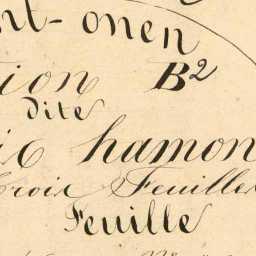 nt-onen
tion B²
dite
ic hamon
Trois Feuilles
Feuille